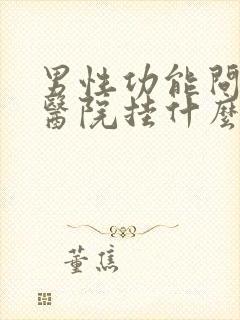 男性功能問
醫院挂什麼
董焦